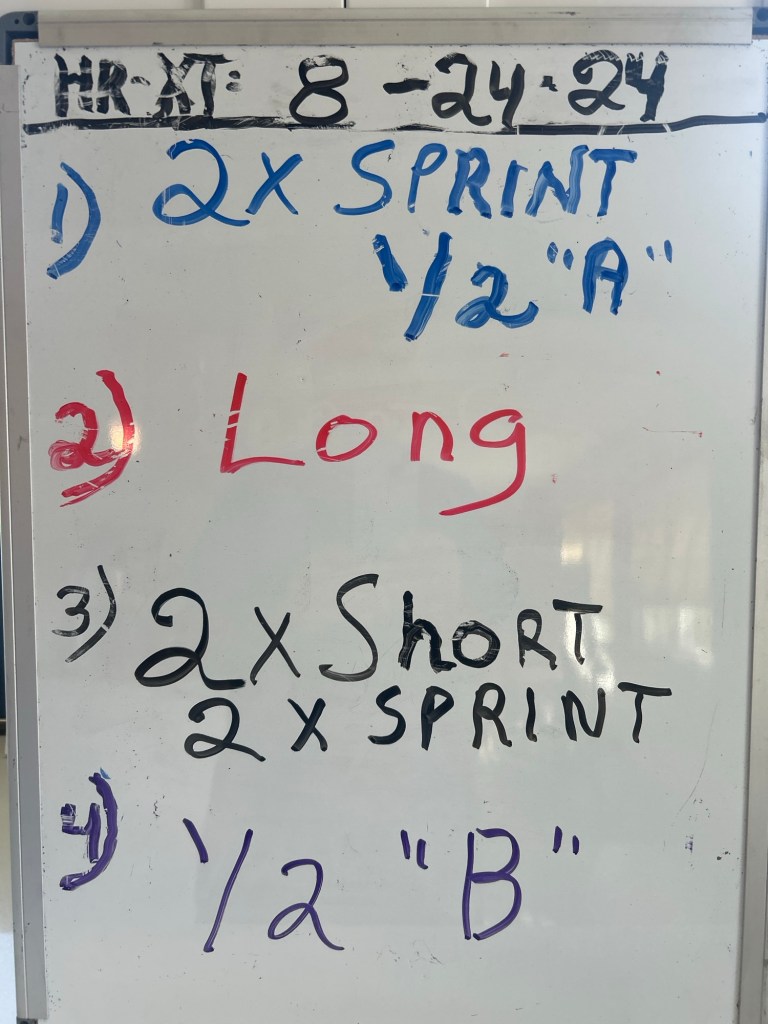 HR-XT: 8-24-24
1) 2x SPRINT
1/2 "A"
2) Long
3) 2x ShoRT
2x SPRINT
4) 1/2 "B"